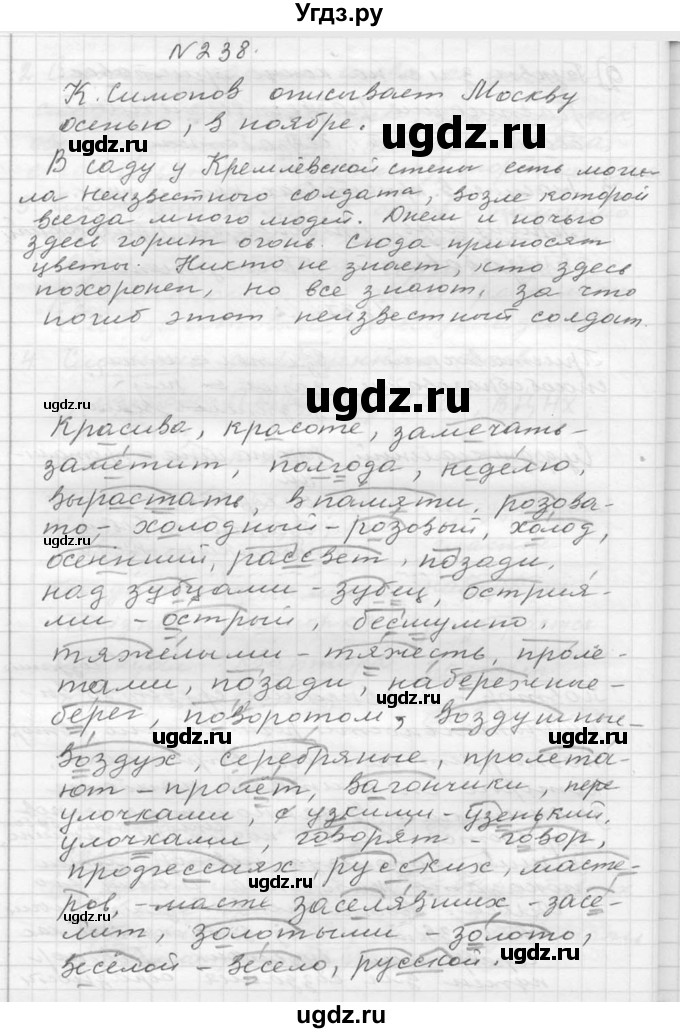 Угдз.ру
N238.
К. Симонов описывает Москву
осенью, в ноябре.
ugdz.ru
В саду у Кремлёвской стены есть моги-
ла Неизвестного солдата, возле которой
всегда много людей. Днем и ночью
здесь горит огонь. Сюда приносят
цветы. Никто не знает, кто здесь
похоронен, но все знают, за что
погиб этот неизвестный солдат.
ugdz.ru
ugdz.ru
ugdz.ru
Красива, красоте, замечать-
заметит, полгода, неделю,
вырастать, в памяти, розова-
то-холодный-розовый, холод,
осенний, рассвет, позади,
над зубцами-зубец, острия-
ми-острый, бесшумно,
тяжёлыми-тяжесть, проле-
тами, позади, набережные-
берег, поворотом, воздушные-
воздух, серебряные, пролета-
ют-пролёт, вагончики, пере
улочками, с узкими-узенький,
улочками, говорят-говор,
профессиях, русских, масте-
ров,-масте заселявших-засе-
лит, золотыми-золото,
весёлой-весело, русской.
ugdz.ru
ugdz.ru
ugdz.ru
ugdz.ru
ugdz.ru
ugdz.ru
ugdz.ru
ugdz.ru
ugdz.ru
ugdz.ru